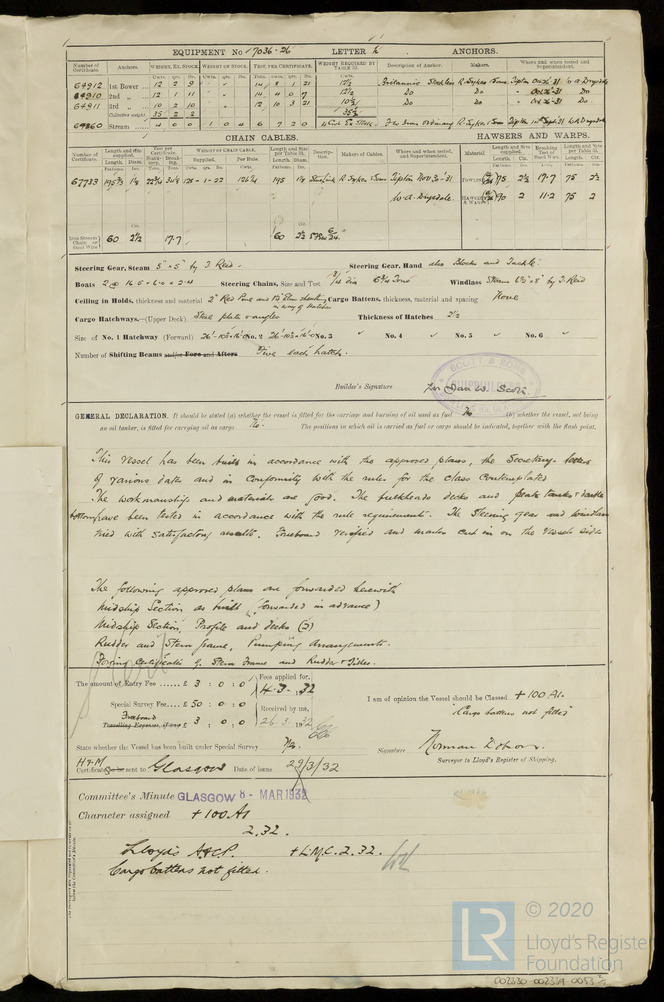 EQUIPMENT No 17036-26 LETTER k ANCHORS.
Number of Certificate. Anchors. WEIGHT, EX. STOCK. WEIGHT OF STOCK. TEST, PER CERTIFICATE. WEIGHT REQUIRED BY TABLE 31. Description of Anchor. Makers. Where and when tested and Superintendent.
Cwts. qrs. lbs. Cwts. qrs. lbs. Tons. cwts. qrs. lbs. Cwts.
64912 1st Bower 12 2 9 14 8 1 21 12½ Britannic Stockless R. Sykes & Sons Tipton Oct 26-31 W. A. Drysdale
64910 2nd „ 12 1 11 14 4 0 7 12½ Do Do „ Oct 26-31 Do
64911 3rd „ 10 2 10 12 10 3 21 10½ Do Do „ Oct 26-31 Do
Collective weight 35 2 2 35½
64860 Stream 4 0 0 1 0 4 6 7 2 0 Ordinary R. Sykes & Sons Tipton
CHAIN CABLES. HAWSERS AND WARPS.
Number of Certificate. Length and size supplied. Test per Certificate. WEIGHT OF CHAIN CABLE. Length and Size per Table 31. Description. Makers of Cables. Where and when tested, and Superintendent. Material Length and Size supplied. Breaking Test of Steel Wire. Length and Size per Table 31.
67733 R. Sykes & Sons Tipton Nov 30-31 75 2½ 17·7 75 2½
W. A. Drysdale. 90 2 11·2 75 2
60 2½ 17·7 60 2½
Steering Gear, Steam 5" × 5" by J. Reid. Steering Gear, Hand also Blocks and Tackle.
Boats 2 @ 16·5 × 6·0 × 2·4 Steering Chains, Size and Test ¾ dia 6¾ Tons Windlass Steam 6½ × 8" by J. Reid
Ceiling in Holds, thickness and material 2" Red Pine and 1½" Elm sheathing in way of Hatches Cargo Battens, thickness, material and spacing None
Cargo Hatchways.—(Upper Deck) Steel plate & angles Thickness of Hatches 2½
Size of No. 1 Hatchway (Forward) No. 2 No. 3 „ No. 4 „ No. 5 „ No. 6 „
Number of Shifting Beams and/or Fore and Afters Five each hatch.
SCOTT & SONS
SHIPBUILDERS
Builder's Signature
GENERAL DECLARATION. It should be stated (a) whether the vessel is fitted for the carriage and burning of oil used as fuel No (b) whether the vessel, not being
an oil tanker, is fitted for carrying oil as cargo No. The positions in which oil is carried as fuel or cargo should be indicated, together with the flash point.
This Vessel has been built in accordance with the approved plans, the Secretary's letters
of various dates and in conformity with the rules for the class contemplated
The workmanship and materials are good. The bulkheads decks and peak tanks & double
bottom have been tested in accordance with the rule requirements. The Steering gear and windlass
tried with satisfactory results. Freeboard verified and marks cut in on the Vessels side
The following approved plans are forwarded herewith
Midship Section as built (forwarded in advance)
Midship Section, Profile and decks (2)
Rudder and Stern frame, Pumping Arrangements.
Forging Certificates of Stern Frame and Rudder & Tiller.
The amount of Entry Fee ...... £ 3 : 0 : 0 Fees applied for, 4·3·32
Special Survey Fee .... £ 50 : 0 : 0 Received by me,
Freeboard
Travelling Expenses, if any £ 3 : 0 : 0 26·3·1932
I am of opinion the Vessel should be Classed +100 A1.
"Cargo battens not fitted"
State whether the Vessel has been built under Special Survey Yes.
Signature
Surveyor to Lloyd's Register of Shipping.
Certificate to be sent to Glasgow Date of issue 29/3/32
Committee's Minute GLASGOW 8 - MAR 1932
Character assigned +100 A1
2.32.
Lloyd's A&CP. + L.M.C. 2.32.
Cargo battens not filled.
LR © 2020
Lloyd's Register
Foundation
002330-002339-0053